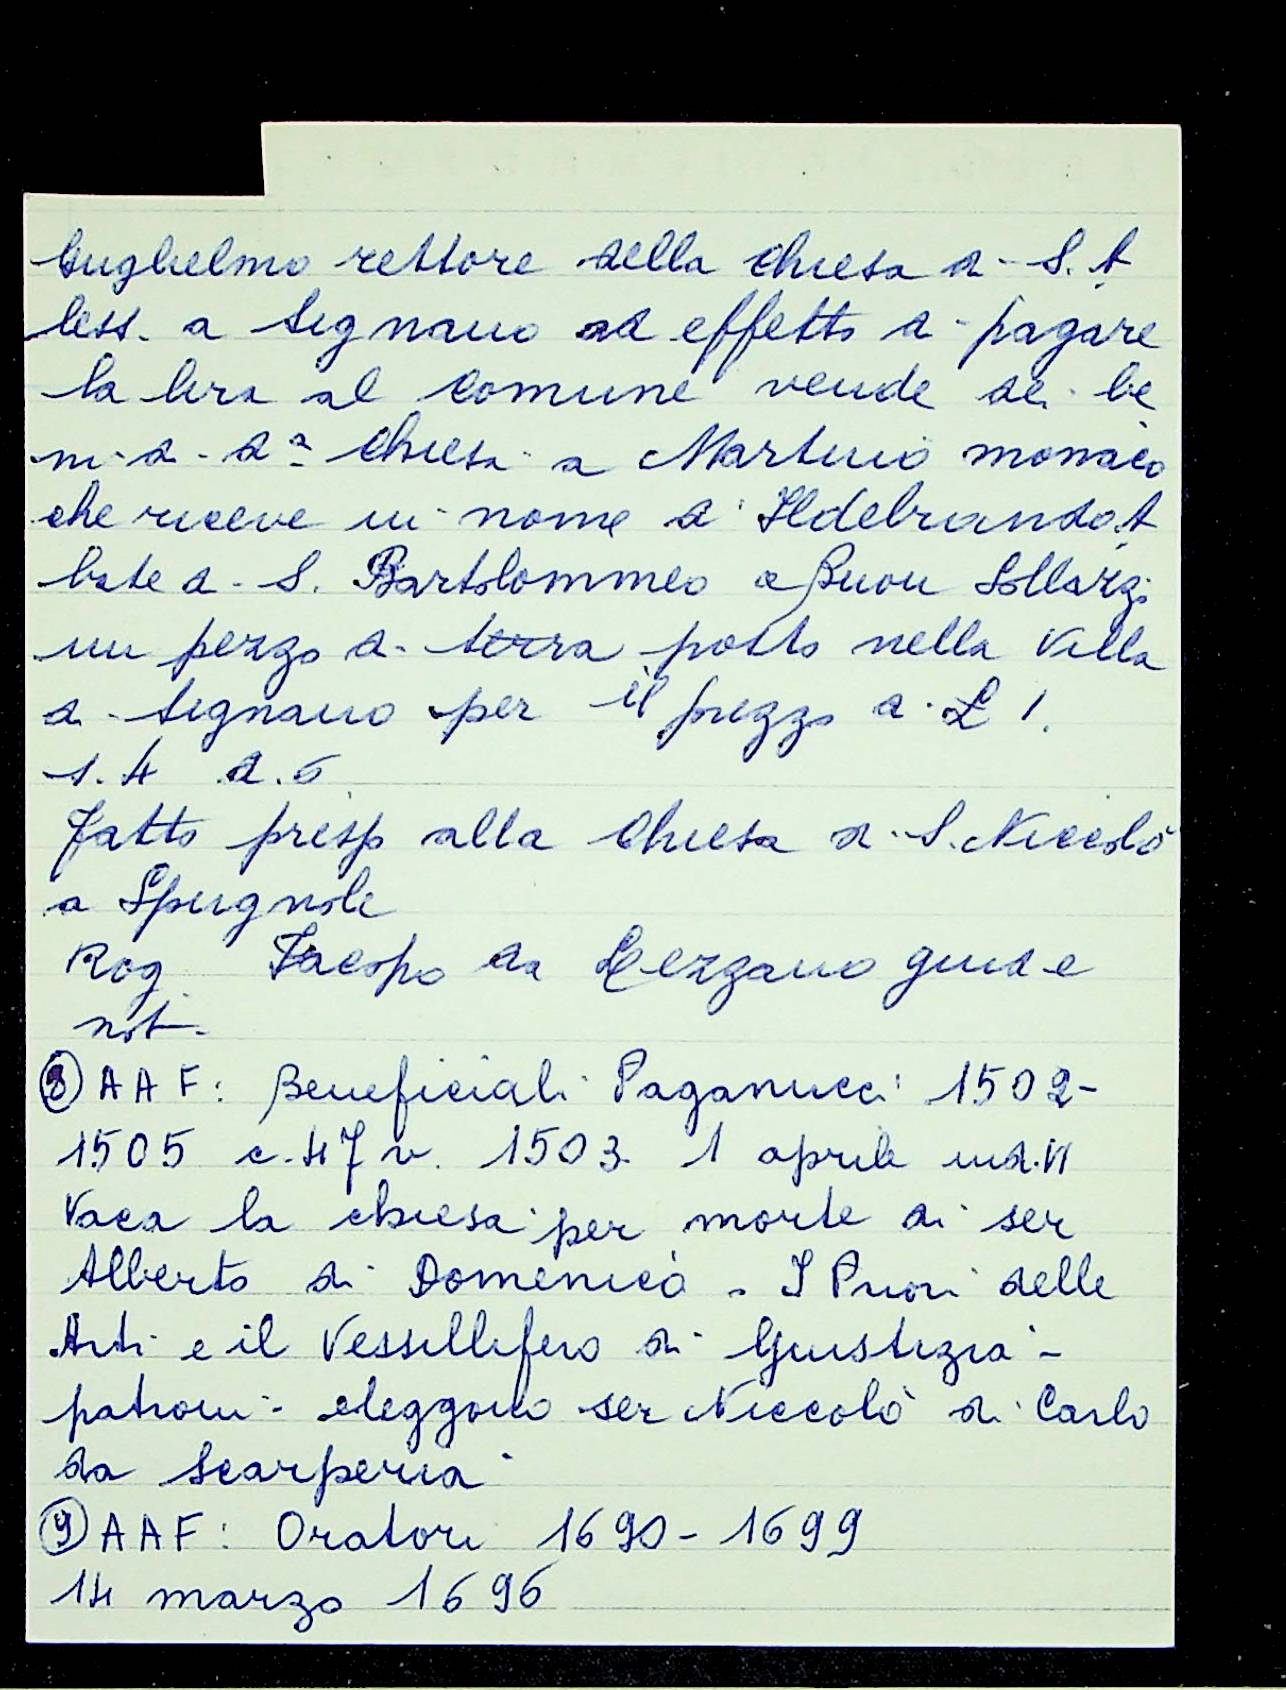 Guglielmo rettore della Chiesa di S. A
less. a Signano ad effetto di pagare
la lira al Comune vende dei be
ni di da Chiesa a Martino monaco
che riceve in nome di Ildebrando A
bate di S. Bartolommeo a Buon Sollazzo
un pezzo di terra posto nella Villa
di Signano per il prezzo di £ 1.
s. 4 d. 6
Fatto presso alla Chiesa di S. Niccolò
a Spugnole
Rog Jacopo da Lezzano giud e
not.
⑧ AAF: Beneficiali Paganucci 1502-
1505 c. 47 v. 1503 1 aprile ind. VI
Vaca la chiesa per morte di ser
Alberto di Domenico - I Priori delle
Arti e il Vessillifero di Giustizia -
patroni - eleggono ser Niccolò di Carlo
da Scarperia
⑨ AAF: Oratori 1690-1699
14 marzo 1696